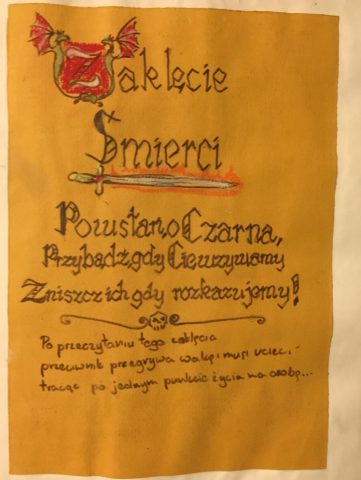 Zaklęcie
Śmierci
Powstań, o Czarna,
Przybądź, gdy Cię wzywamy
Zniszcz ich gdy rozkazujemy!
Po przeczytaniu tego zaklęcia
przeciwnik przegrywa walkę i musi uciec,
tracąc po jednym punkcie życia na osobę...